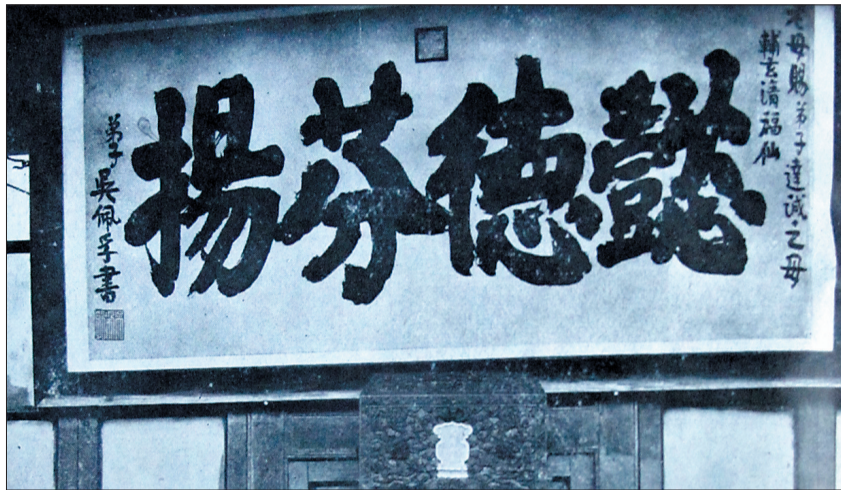 老母賜弟子達誠之母
輔玄清福仙
懿德芬揚
弟子吳佩孚書